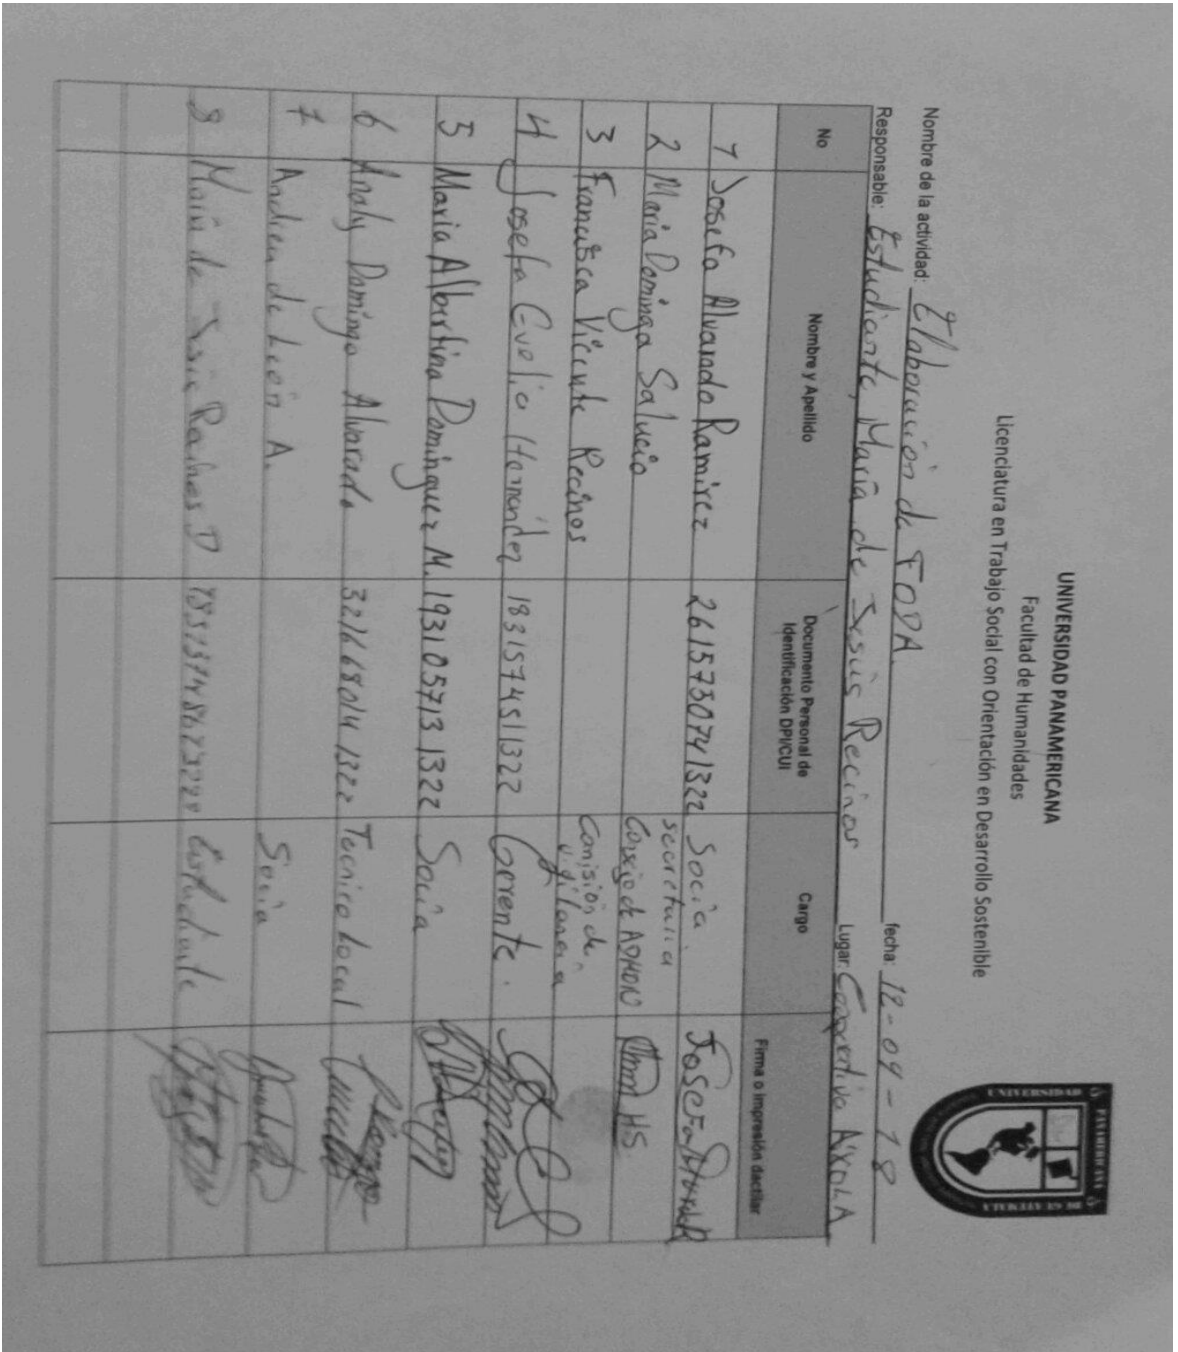 UNIVERSIDAD PANAMERICANA
Facultad de Humanidades
Licenciatura en Trabajo Social con Orientación en Desarrollo Sostenible
Nombre de la actividad: Elaboración de FODA. fecha: 12-04-18
Responsable: Estudiante, María de Jesús Recinos Lugar: Cooperativa AIXOLA
No Nombre y Apellido Documento Personal de Identificación DPI/CUI Cargo Firma o impresión dactilar
1 Josefa Alvarado Ramirez 2615750741322 Socia.
2 Maria Dominga Salucio secretaria Consejo de ADMON HS
3 Francisca Vicente Recinos Comisión de vigilancia
4 Josefa Evelia Hernández 1831574511322 Gerente.
5 Maria Albertina Dominguez M. 1931057131322 Socia
6 Analy Domingo Alvarado 3216680141322 Tecnico Local
7 Andrea de León A. Socia
8 María de Jesús Recinos D Estudiante
UNIVERSIDAD PANAMERICANA DE GUATEMALA